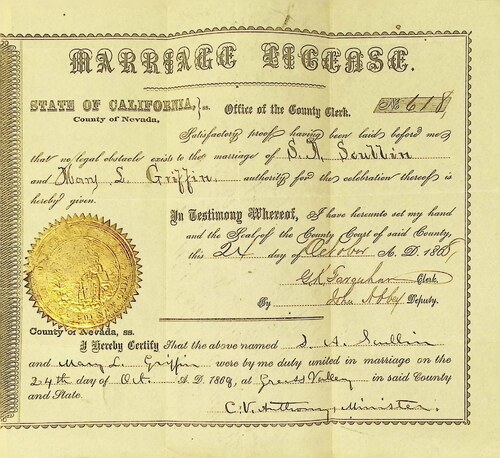 MARRIAGE LICENSE.
STATE OF CALIFORNIA, } ss. Office of the County Clerk. No 618
County of Nevada,
Satisfactory proof having been laid before me
that no legal obstacle exists to the marriage of S. A. Scullin
and Mary L. Griffin, authority for the celebration thereof is
hereby given.
In Testimony Whereof, I have hereunto set my hand
and the Seal of the County Court of said County,
this 24 day of October A. D. 1868,
Farquhar Clerk.
By John Deputy.
County of Nevada, ss.
I Hereby Certify That the above named S. A. Scullin
and Mary L. Griffin were by me duly united in marriage on the
24th day of Oct. A. D. 1868, at Grass Valley in said County
and State
C. V. Anthony, Minister.